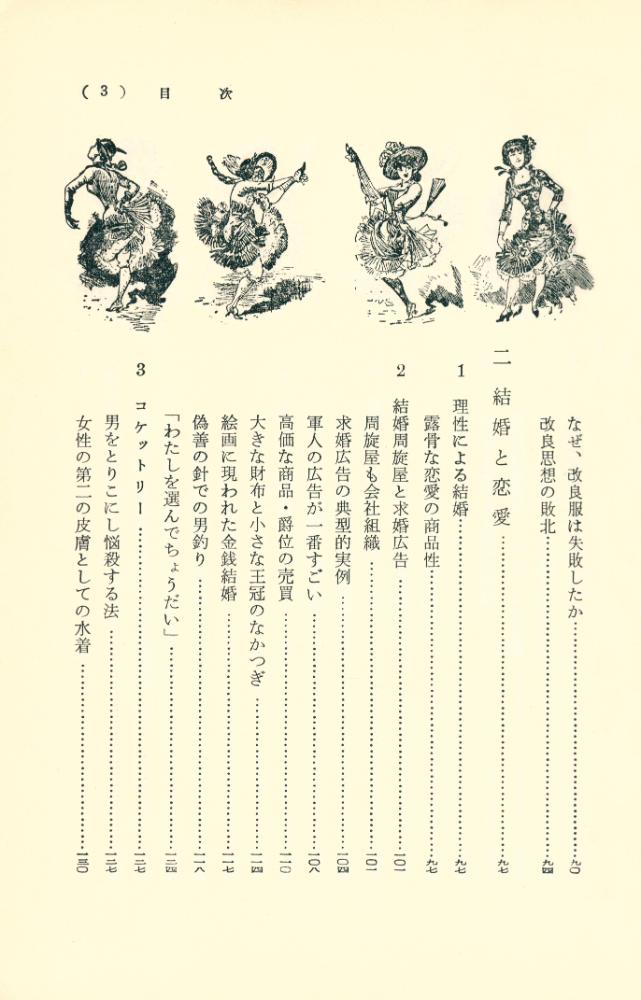 (3) 目次
なぜ、改良服は失敗したか…………九〇
改良思想の敗北…………九四
二 結婚と恋愛…………九七
1 理性による結婚…………九七
露骨な恋愛の商品性…………九七
2 結婚周旋屋と求婚広告…………一〇一
周旋屋も会社組織…………一〇一
求婚広告の典型的実例…………一〇四
軍人の広告が一番すごい…………一〇八
高価な商品・爵位の売買…………一一〇
大きな財布と小さな王冠のなかつぎ…………一一四
絵画に現われた金銭結婚…………一一七
偽善の針での男釣り…………一一八
「わたしを選んでちょうだい」…………一二四
3 コケットリー…………一二七
男をとりこにし悩殺する法…………一二七
女性の第二の皮膚としての水着…………一三〇